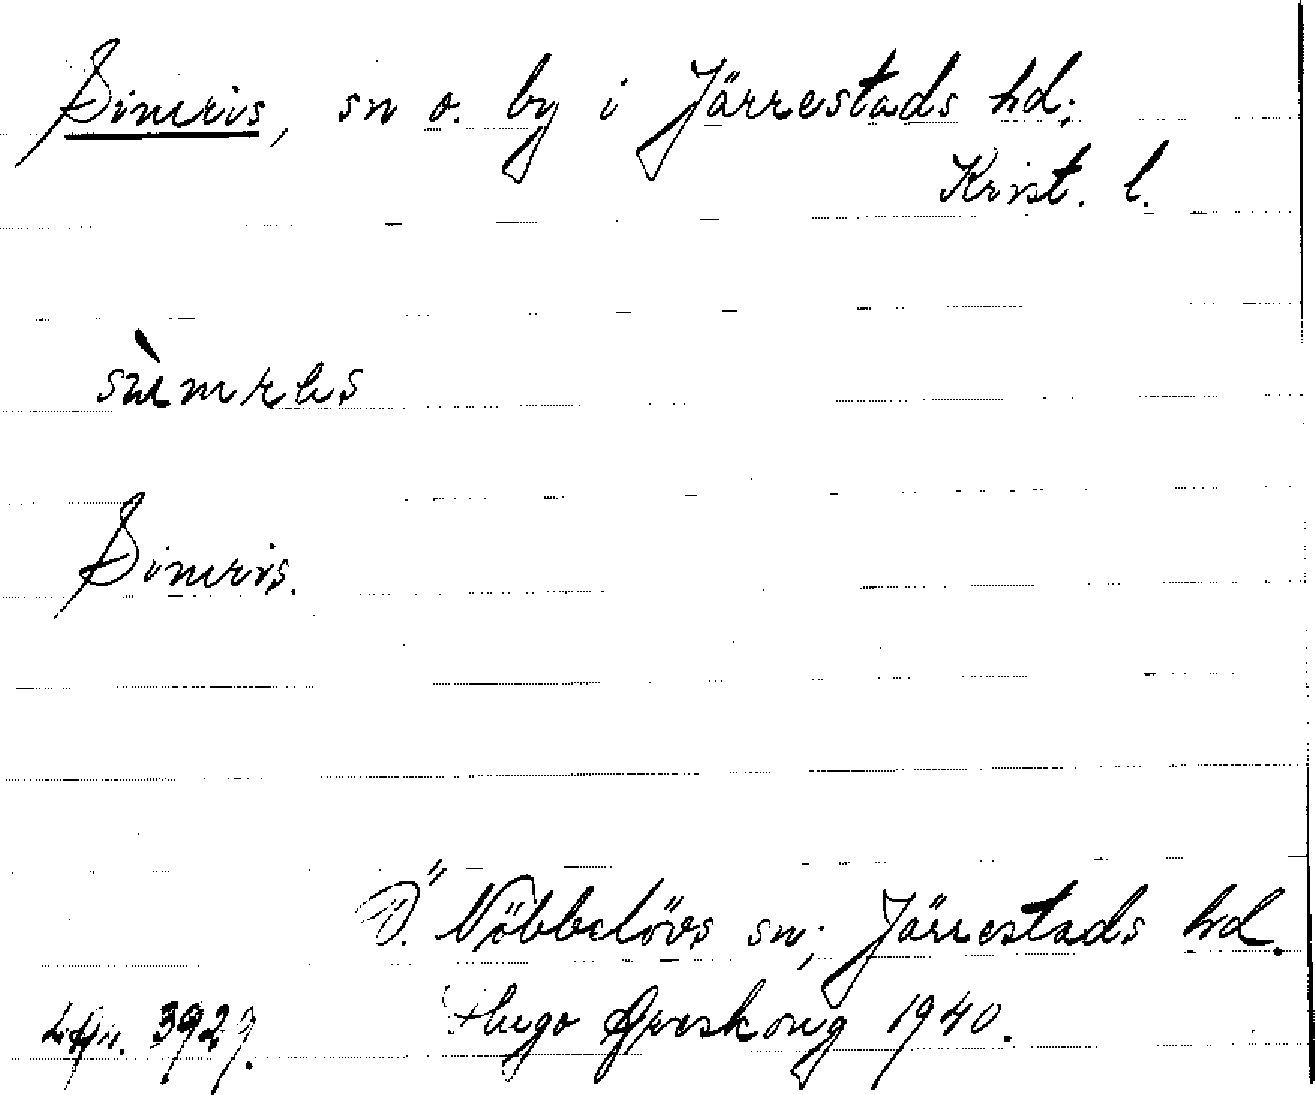 Simris, sn o. by i Järrestads hd;
Krist. l.
Simris.
Ö. Nöbbelövs sn; Järrestads hd.
3927. Hugo Areskoug 1940.